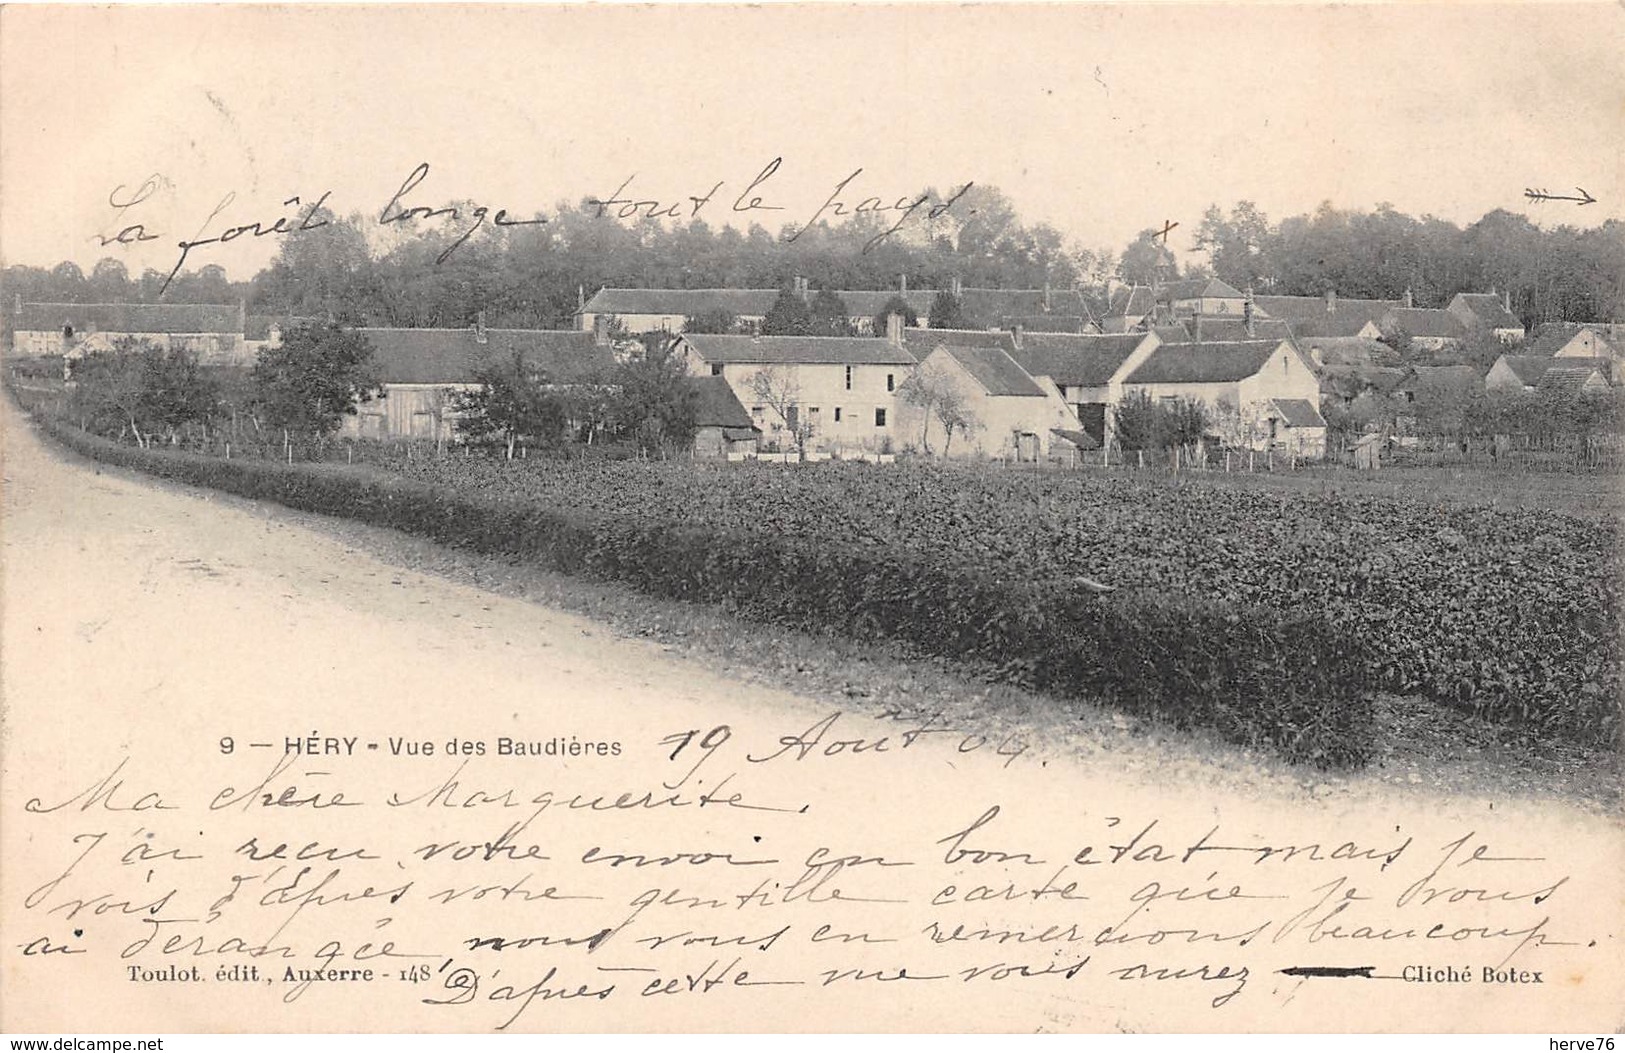 La forêt longe tout le pays
9 — HÉRY - Vue des Baudières
19 Août 04.
Ma chère Marguerite.
J'ai reçu votre envoi en bon êtat mais je
vois d'Après votre gentille carte que je vous
ai dérangée, nous vous en remercions beaucoup.
D'après cette vue vous aurez
Toulot. édit., Auxerre - 148
Cliché Botex
www.delcampe.net
herve76